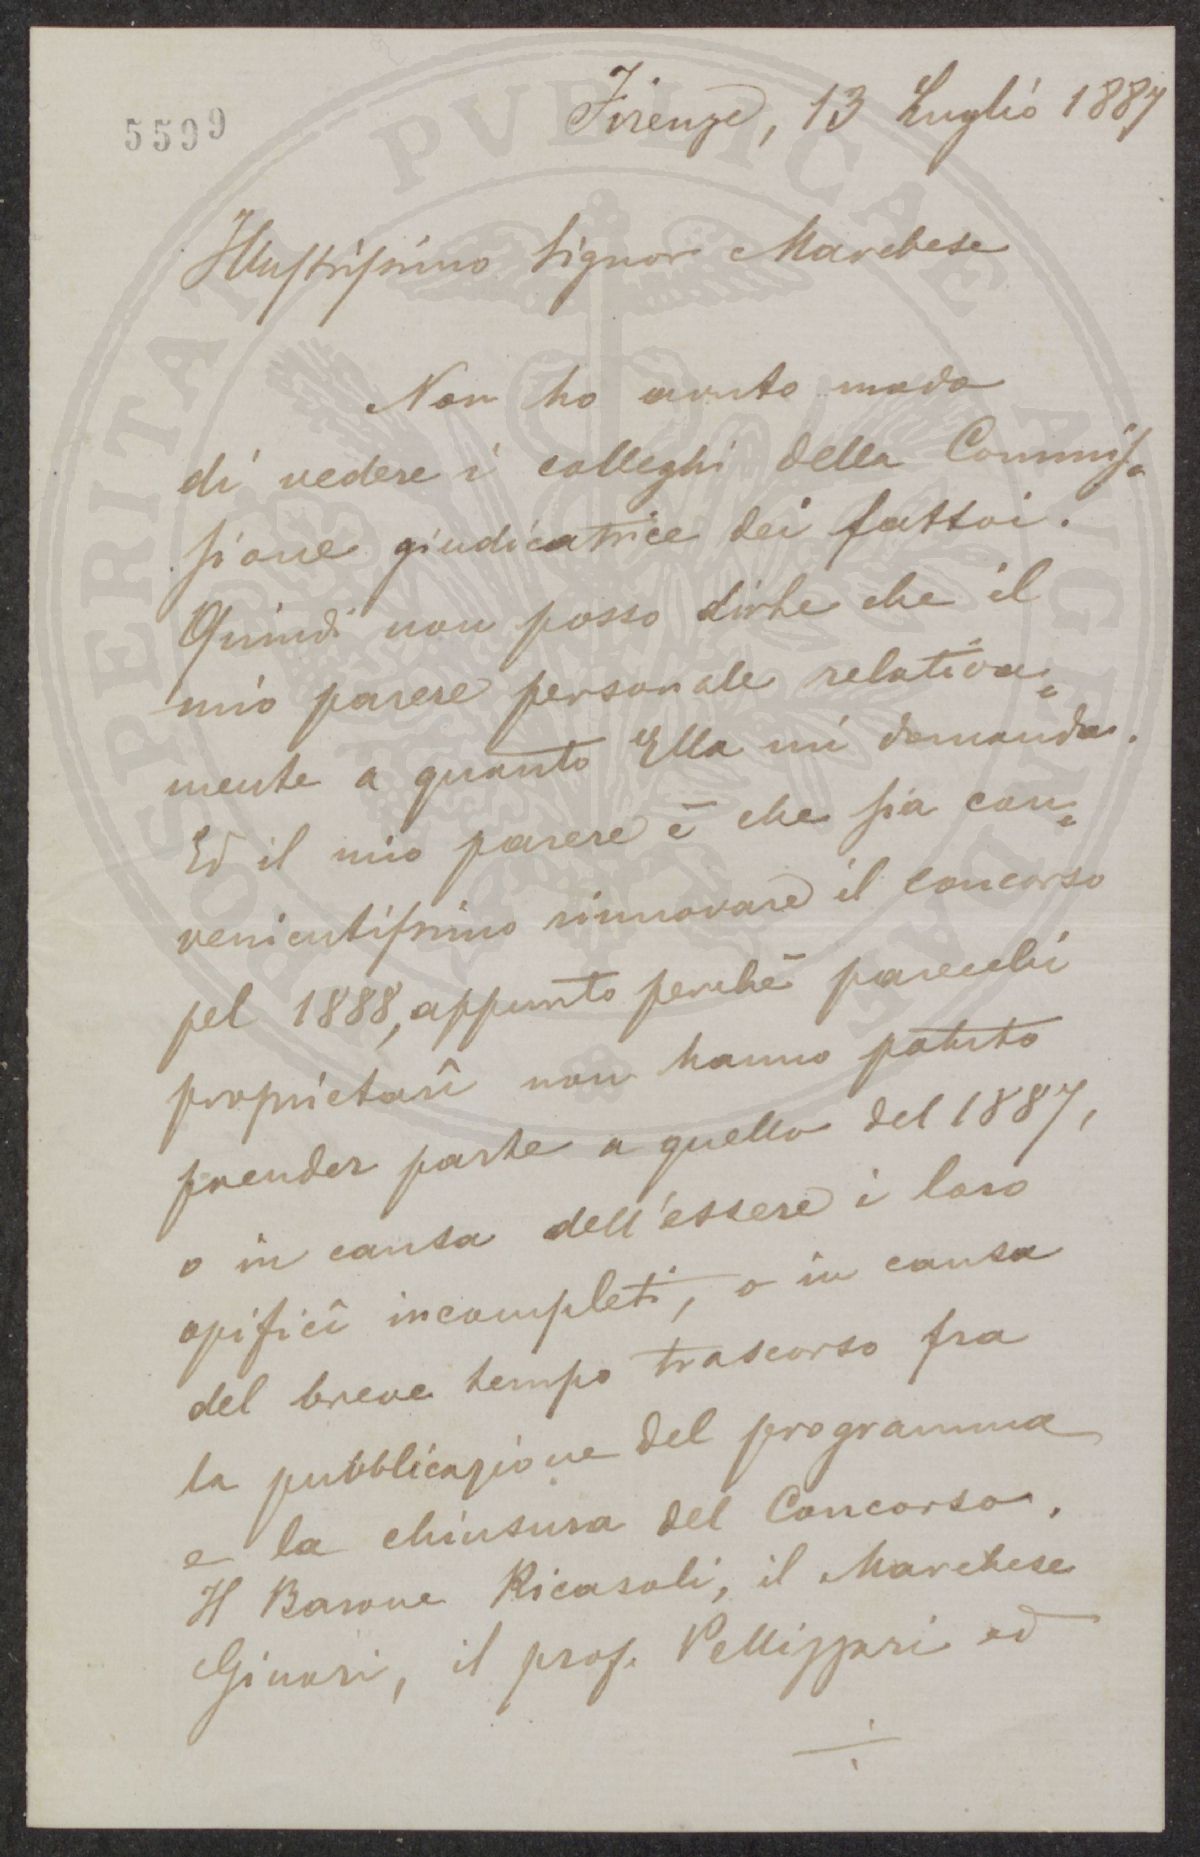 5599
Firenze, 13 Luglio 1887
Illustrissimo Signor Marchese
Non ho avuto modo
di vedere i colleghi della Commis=
sione giudicatrice dei fattoi.
Quindi non posso dirle che il
mio parere personale relativa=
mente a quanto Ella mi domanda.
Ed il mio parere è che sia con=
venientissimo rinnovare il concorso
pel 1888, appunto perchè parecchi
proprietarî non hanno potuto
prender parte a quello del 1887,
o in causa dell'essere i loro
opificî incompleti, o in causa
del breve tempo trascorso fra
la pubblicazione del programma
e la chiusura del Concorso.
Il Barone Ricasoli, il Marchese
Ginori, il prof. Pellizzari ed
PROSPERITATI PVBLICAE AVGENDAE